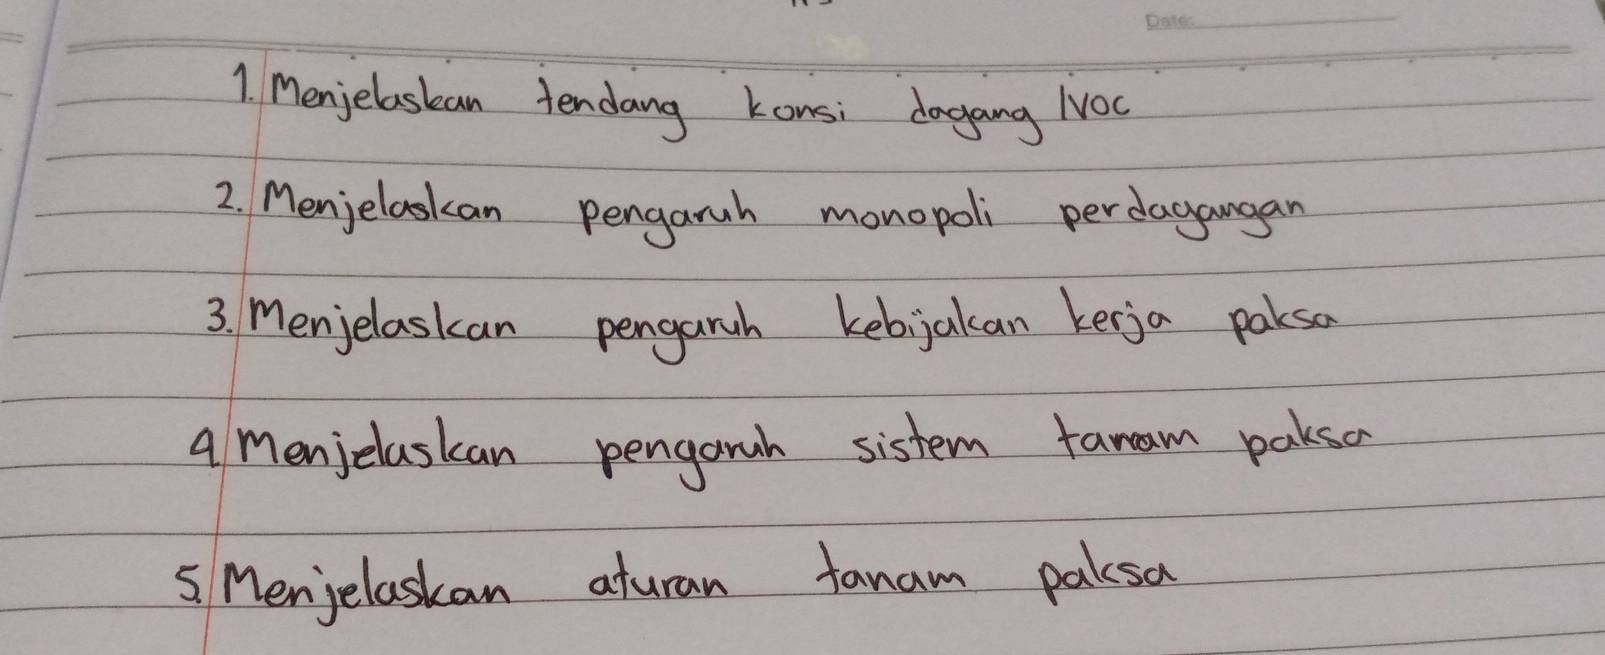 Date:
1. Menjelaskan tendang konsi dagang /VOC
2. Menjelaskan pengaruh monopoli perdagangan
3. Menjelaskan pengaruh kebijakan kerja paksa
4. Menjelaskan pengaruh sistem tanam paksa
5. Menjelaskan aturan tanam paksa